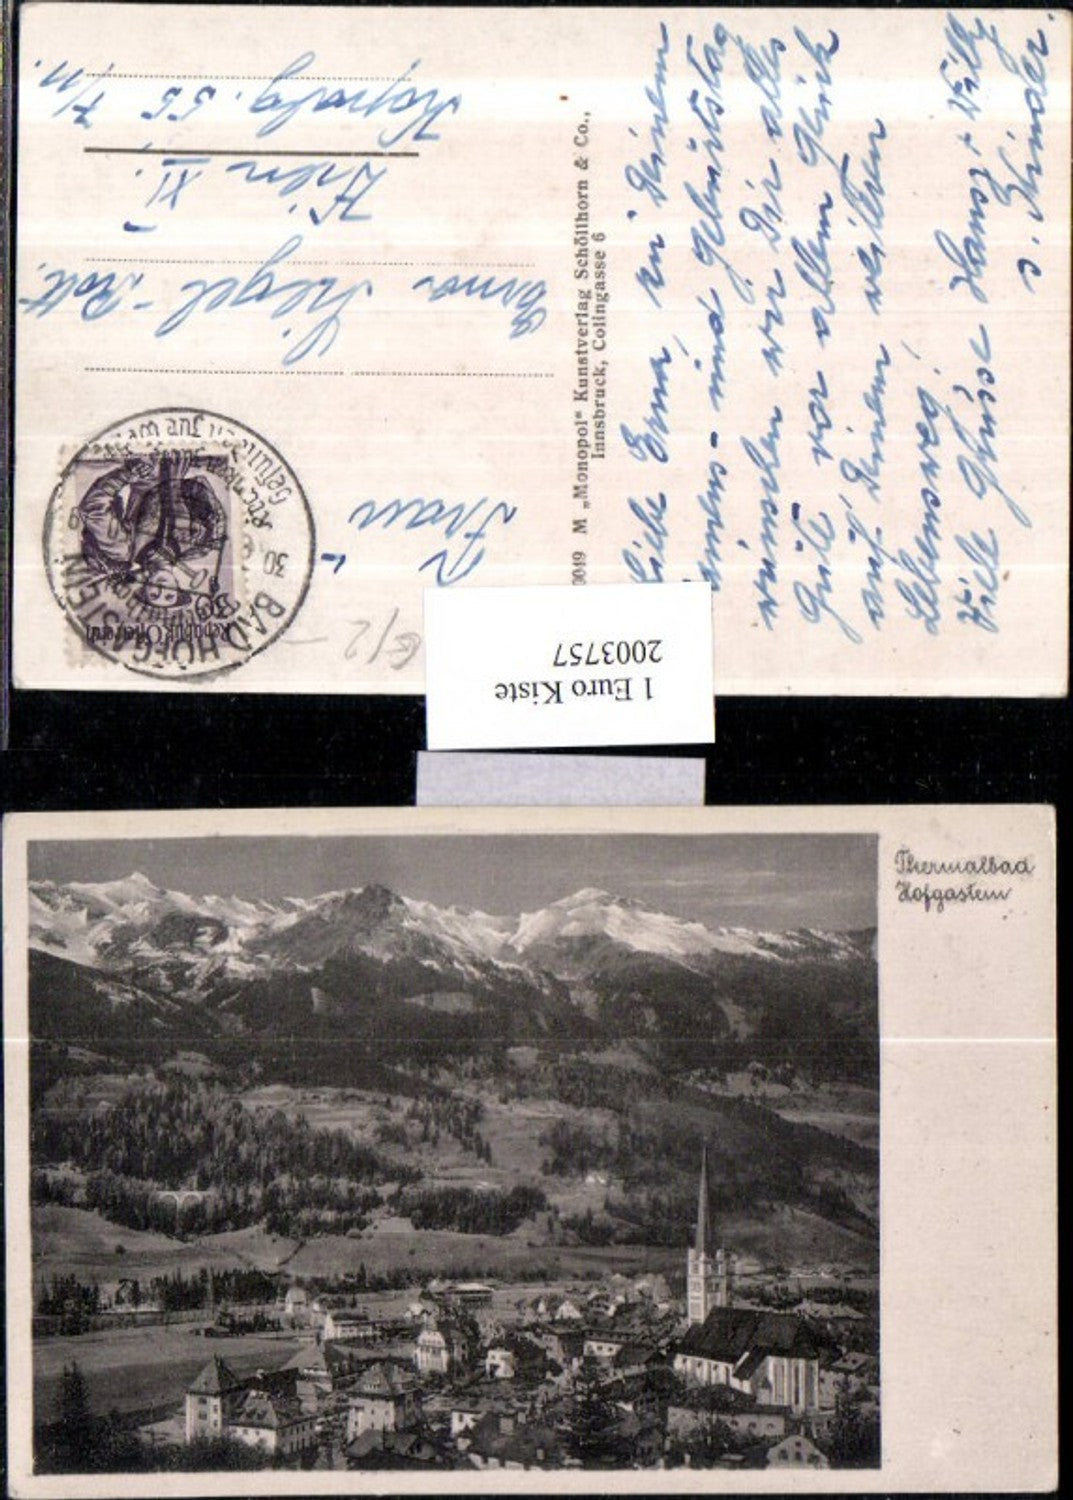 Liebe Erna zu Deinem
Namens- und Geburtstag
wünschen wir Dir alles
Gute vor allem Glück
auf Deinem weiteren
Lebensweg.
Viele Grüsse Hansi + Willy
u. Kinder.
M „Monopol“ Kunstverlag Schöllhorn & Co.,
Innsbruck, Colingasse 6
Frau
Erna
Wien XI.
55 7/11.
BAD HOFGASTEIN
30
Republik Österreich
1 Euro Kiste
2003757
Thermalbad
Hofgastein